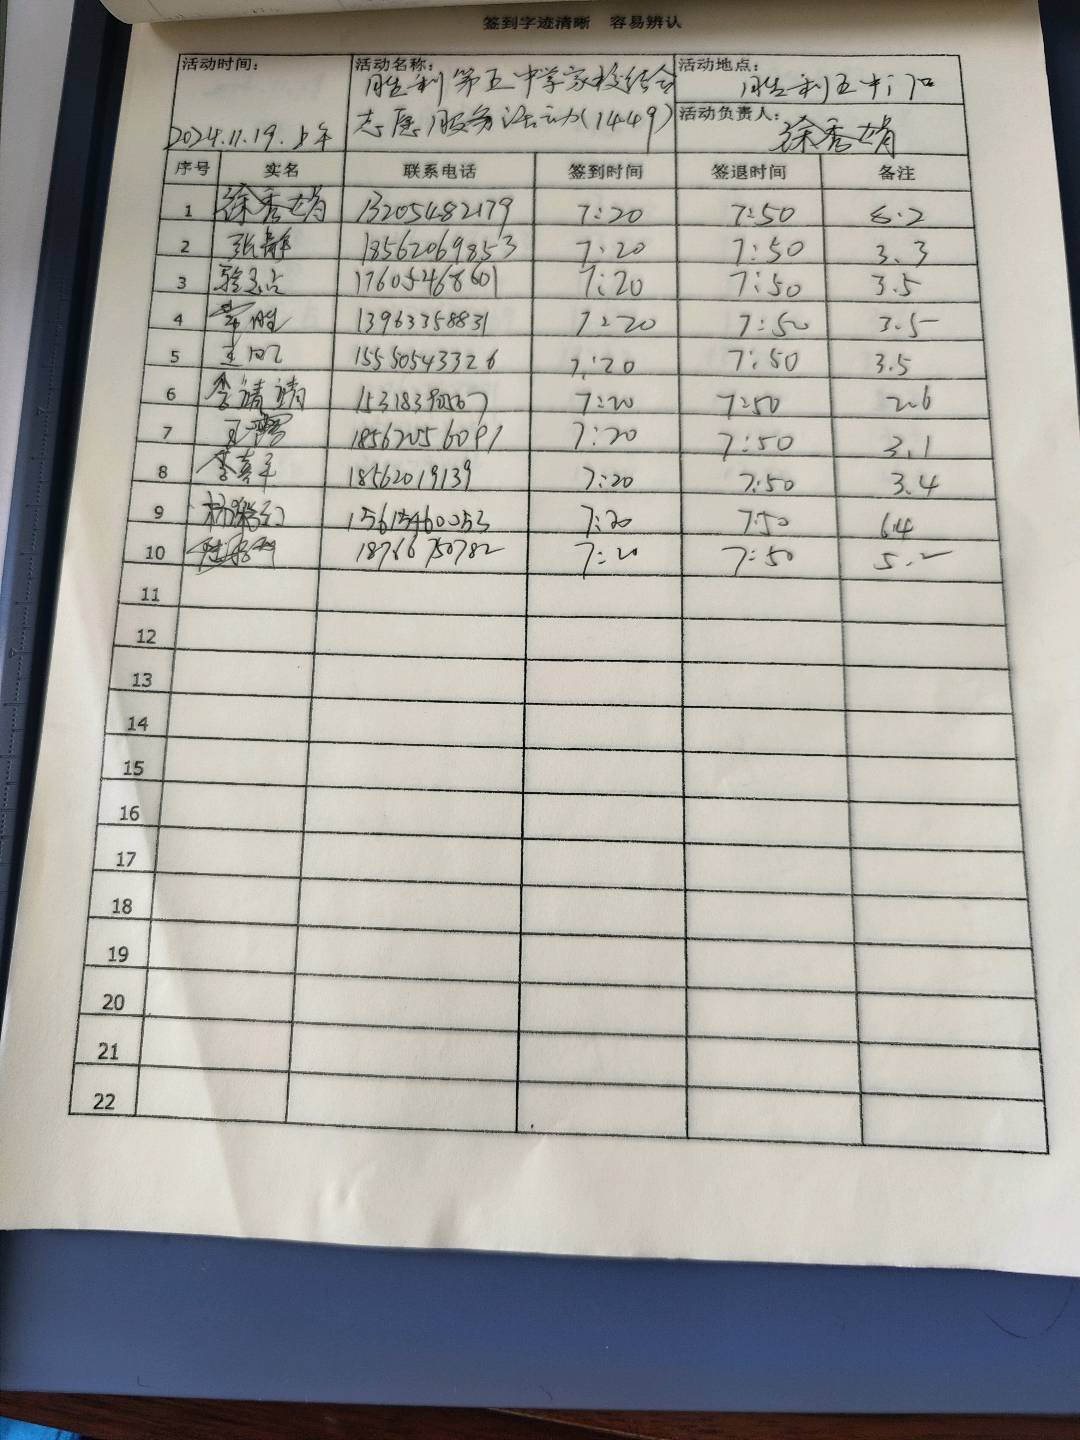 签到字迹清晰 容易辨认
活动时间: 2024.11.19.上午
活动名称: 胜利第五中学家校结合
志愿服务活动(1449)
活动地点: 胜利五中门口
活动负责人: 徐秀娟
序号 实名 联系电话 签到时间 签退时间 备注
1 徐秀娟 13205482179 7:20 7:50 8.2
2 张静 18562069853 7:20 7:50 3.3
3 17605468601 7:20 7:50 3.5
4 13963358831 7:20 7:50 3.5
5 15550543326 7:20 7:50 3.5
6 李靖靖 7:20 7:50 2.6
7 18562056091 7:20 7:50 3.1
8 18562019139 7:20 7:50 3.4
9 15615460053 7:20 7:50 6.4
10 18766750782 7:20 7:50 5.2
11
12
13
14
15
16
17
18
19
20
21
22